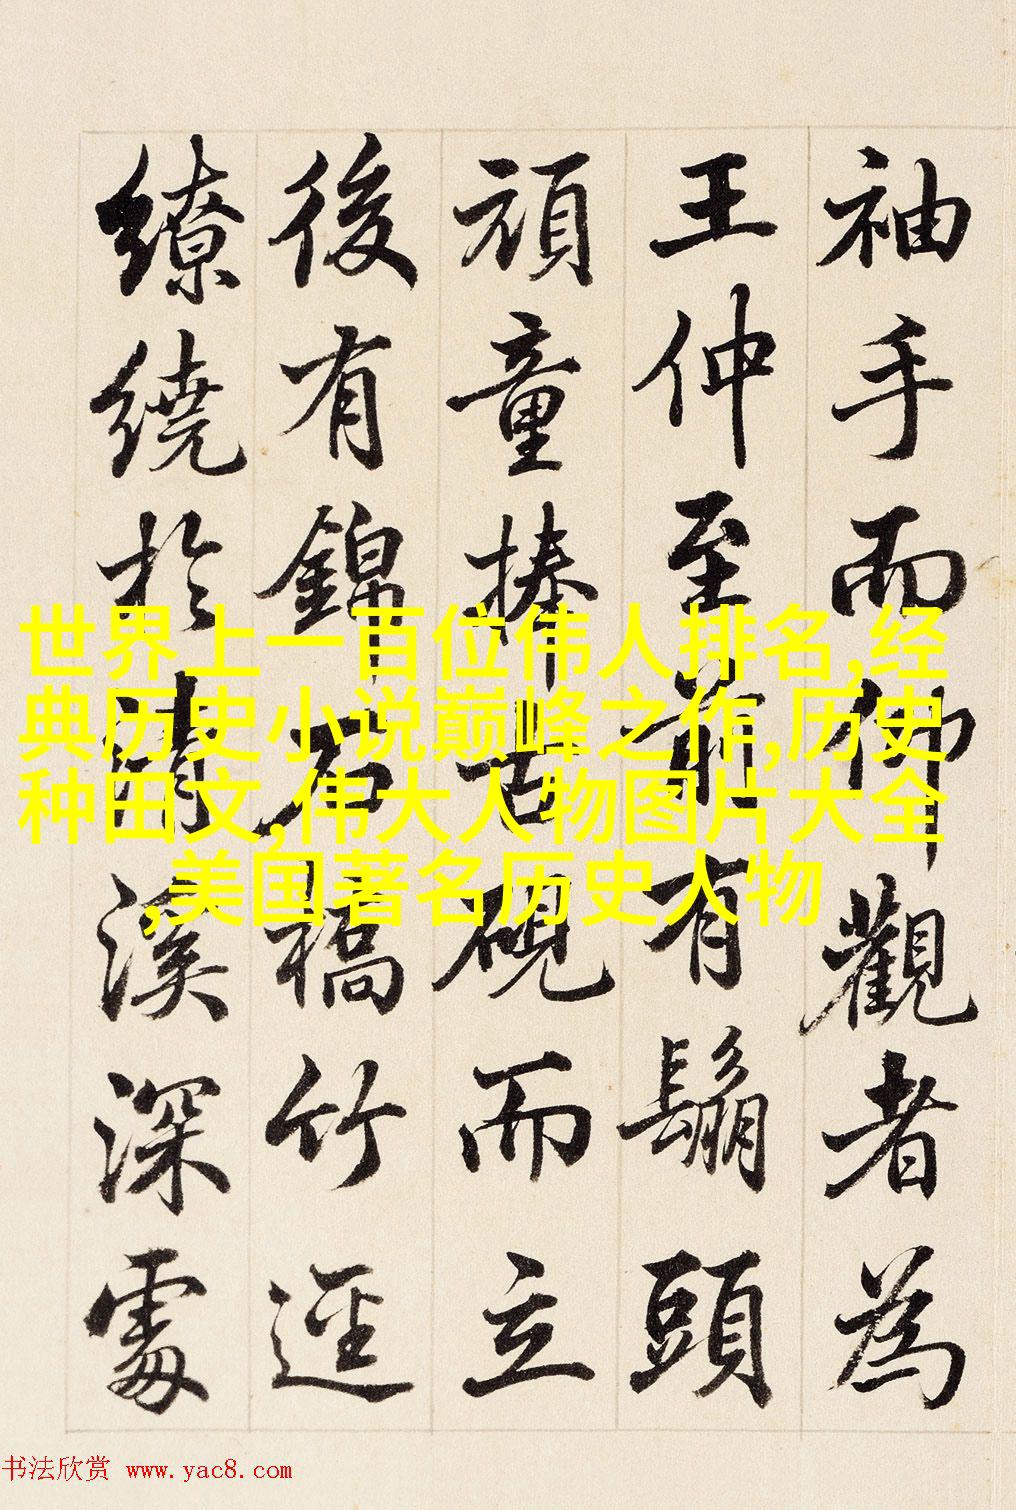 袖手而仰觀者為
王仲至前有鬅頭
頑童捧古硯而立
後有錦石橋竹逕
繚繞於清溪深處
世界上一百位伟人排名,经
典历史小说巅峰之作,历史
种田文,伟大人物图片大全
,美国著名历史人物
书法欣赏 www.yac8.com